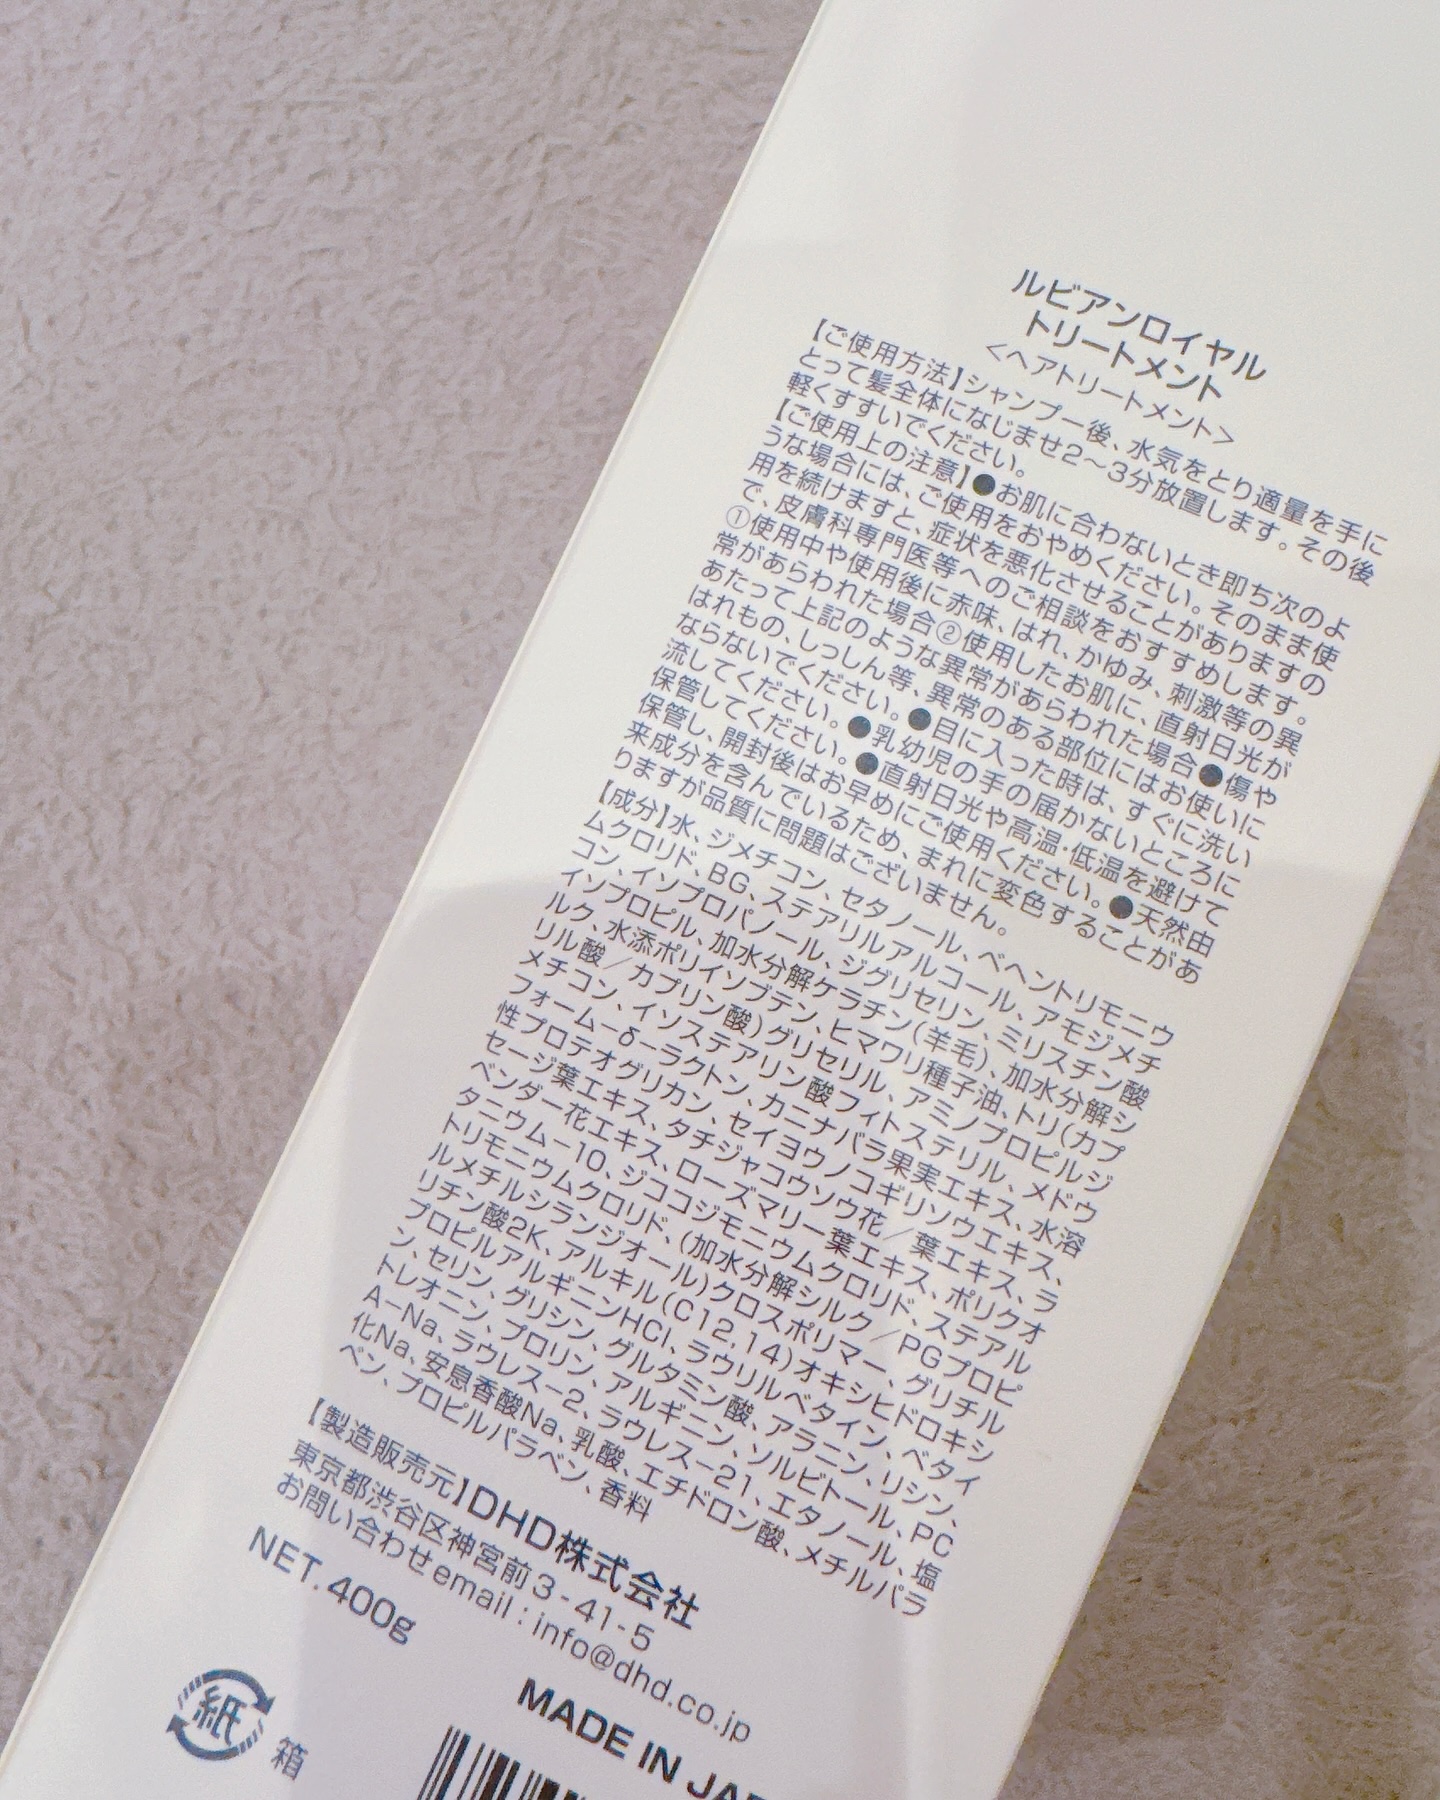 ルビアンロイヤル
トリートメント
＜ヘアトリートメント＞
【ご使用方法】シャンプー後、水気をとり適量を手に
とって髪全体になじませ2～3分放置します。その後
軽くすすいでください。
【ご使用上の注意】●お肌に合わないとき即ち次のよ
うな場合には、ご使用をおやめください。そのまま使
用を続けますと、症状を悪化させることがありますの
で、皮膚科専門医等へのご相談をおすすめします。
①使用中や使用後に赤味、はれ、かゆみ、刺激等の異
常があらわれた場合②使用したお肌に、直射日光が
あたって上記のような異常があらわれた場合●傷や
はれもの、しっしん等、異常のある部位にはお使いに
ならないでください。●目に入った時は、すぐに洗い
流してください。●乳幼児の手の届かないところに
保管してください。●直射日光や高温・低温を避けて
保管し、開封後はお早めにご使用ください。●天然由
来成分を含んでいるため、まれに変色することがあ
りますが品質に問題はございません。
【成分】水、ジメチコン、セタノール、ベヘントリモニウ
ムクロリド、BG、ステアリルアルコール、アモジメチ
コン、イソプロパノール、ジグリセリン、ミリスチン酸
イソプロピル、加水分解ケラチン（羊毛）、加水分解シ
ルク、水添ポリイソブテン、ヒマワリ種子油、トリ（カプ
リル酸／カプリン酸）グリセリル、アミノプロピルジ
メチコン、イソステアリン酸フィトステリル、メドウ
フォーム-δ-ラクトン、カニナバラ果実エキス、水溶
性プロテオグリカン、セイヨウノコギリソウエキス、
セージ葉エキス、タチジャコウソウ花／葉エキス、ラ
ベンダー花エキス、ローズマリー葉エキス、ポリクオ
タニウム-10、ジココジモニウムクロリド、ステアル
トリモニウムクロリド、（加水分解シルク／PGプロピ
ルメチルシランジオール）クロスポリマー、グリチル
リチン酸2K、アルキル（C12,14）オキシヒドロキシ
プロピルアルギニンHCl、ラウリルベタイン、ベタイ
ン、セリン、グリシン、グルタミン酸、アラニン、リシン、
トレオニン、プロリン、アルギニン、ソルビトール、PC
A-Na、ラウレス-2、ラウレス-21、エタノール、塩
化Na、安息香酸Na、乳酸、エチドロン酸、メチルパラ
ベン、プロピルパラベン、香料
【製造販売元】DHD株式会社
東京都渋谷区神宮前3-41-5
お問い合わせemail : info@dhd.co.jp
NET. 400g
MADE IN
紙
箱